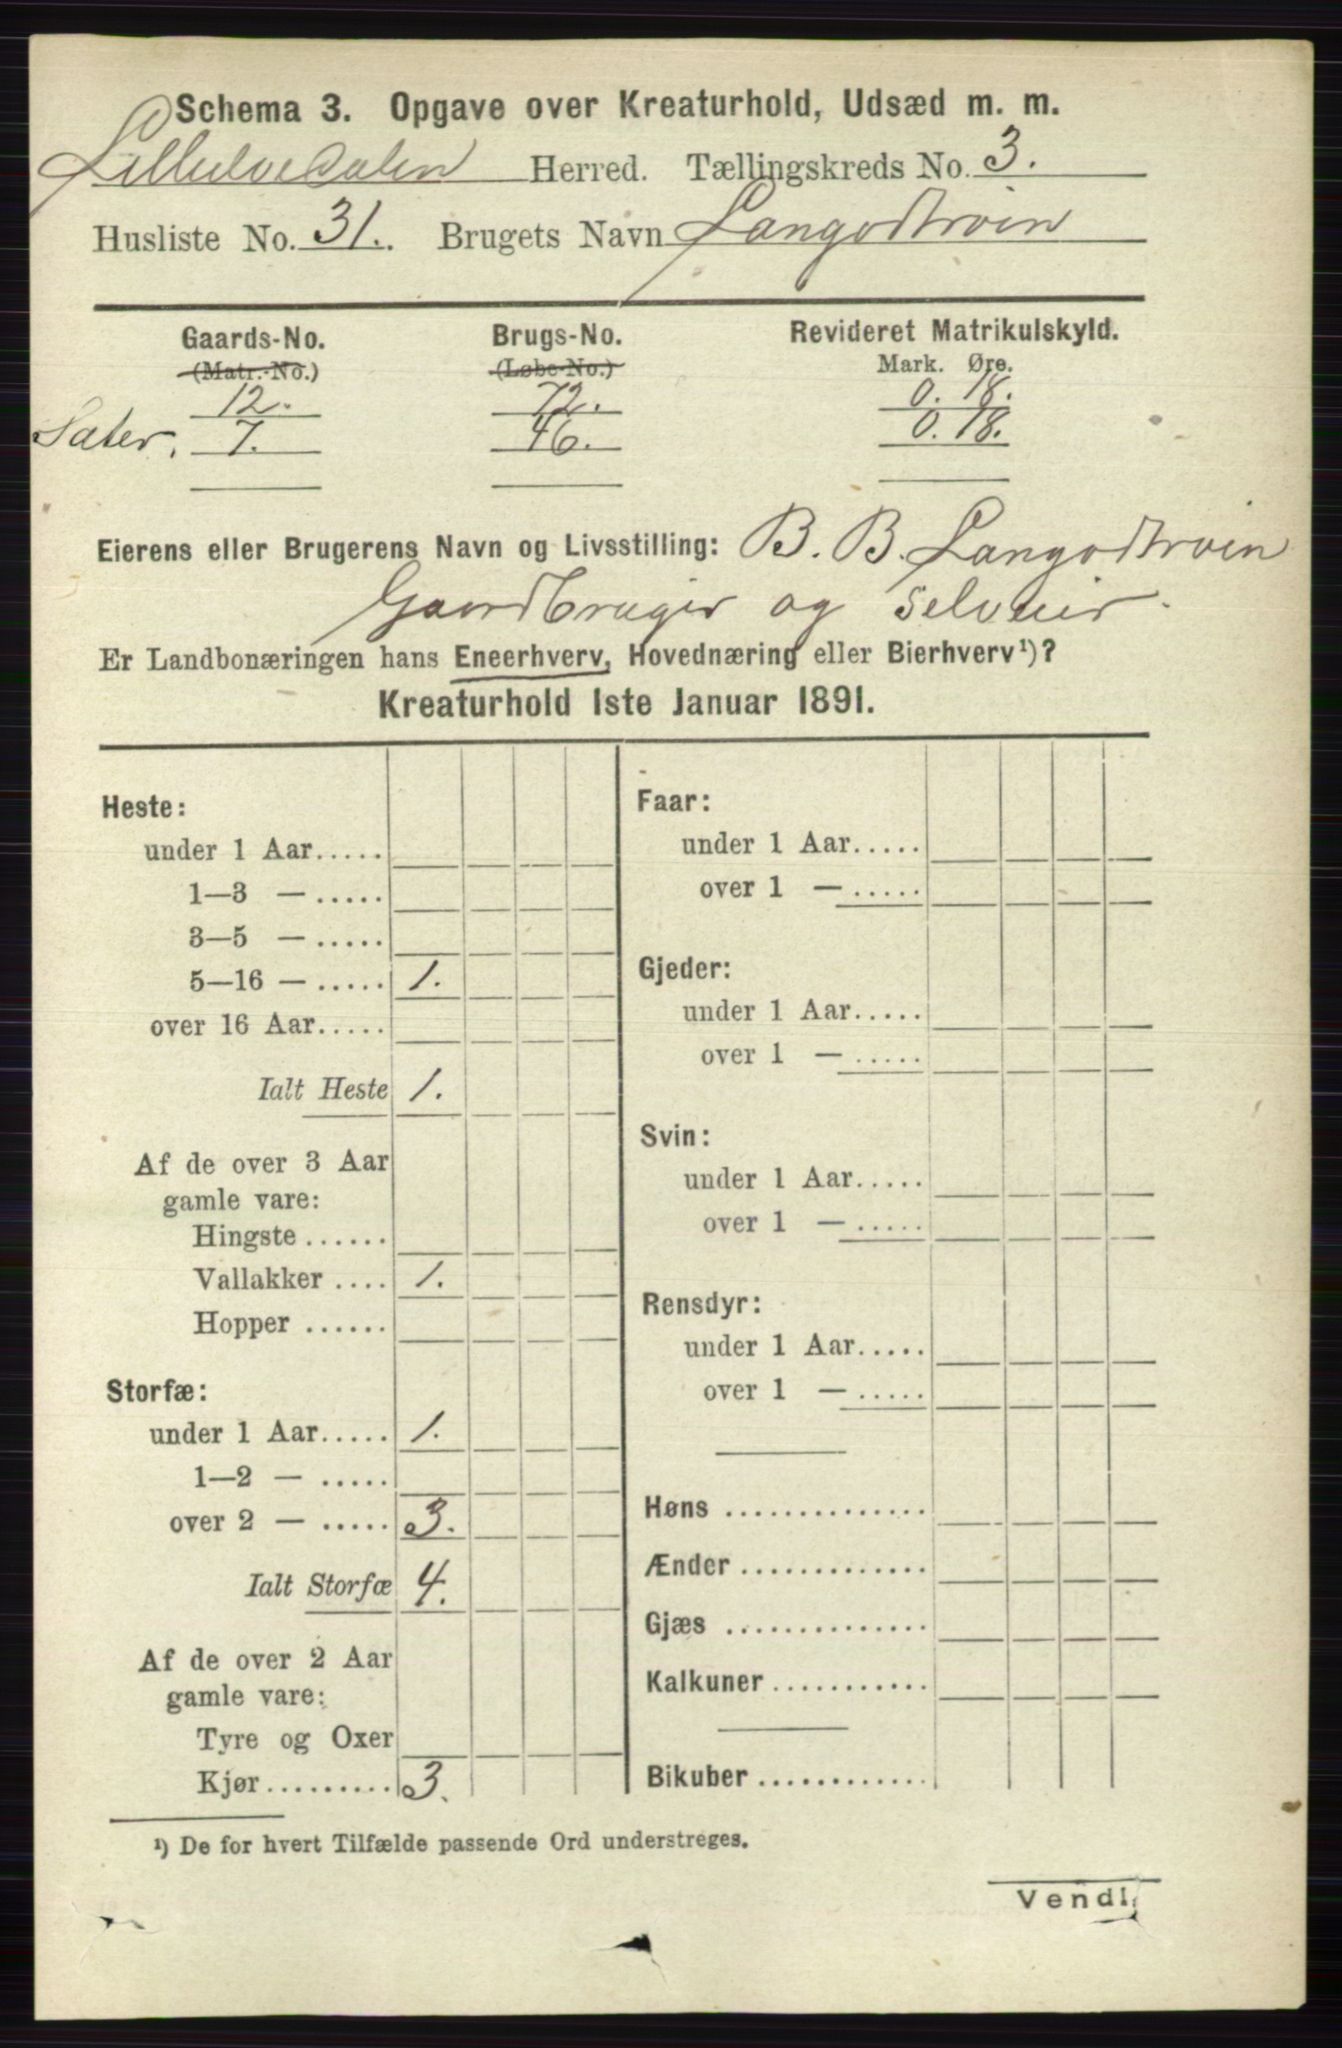 Schema 3. Opgave over Kreaturhold, Udsæd m. m.
Lilleelvedalen Herred. Tællingskreds No. 3.
Husliste No. 31. Brugets Navn Langodtroin
Gaards-No. Brugs-No. Revideret Matrikulskyld.
(Matr.-No.) (Løbe-No.) Mark. Øre.
12. 72. 0. 18.
Sæter. 7. 46. 0. 18.
Eierens eller Brugerens Navn og Livsstilling: B. B. Langodtroin
Gaardbruger og selveier.
Er Landbonæringen hans Eneerhverv, Hovednæring eller Bierhverv¹)?
Kreaturhold 1ste Januar 1891.
Heste:
under 1 Aar.....
1—3 — .....
3—5 — .....
5—16 — ..... 1.
over 16 Aar.....
Ialt Heste 1.
Af de over 3 Aar
gamle vare:
Hingste ......
Vallakker .... 1.
Hopper ......
Storfæ:
under 1 Aar..... 1.
1—2 — .....
over 2 — ..... 3.
Ialt Storfæ 4.
Af de over 2 Aar
gamle vare:
Tyre og Oxer
Kjør.......... 3.
Faar:
under 1 Aar.....
over 1 — .....
Gjeder:
under 1 Aar.....
over 1 — .....
Svin:
under 1 Aar.....
over 1 — .....
Rensdyr:
under 1 Aar.....
over 1 — .....
Høns ..............
Ænder .............
Gjæs ..............
Kalkuner ...........
Bikuber ............
¹) De for hvert Tilfælde passende Ord understreges.
Vend!